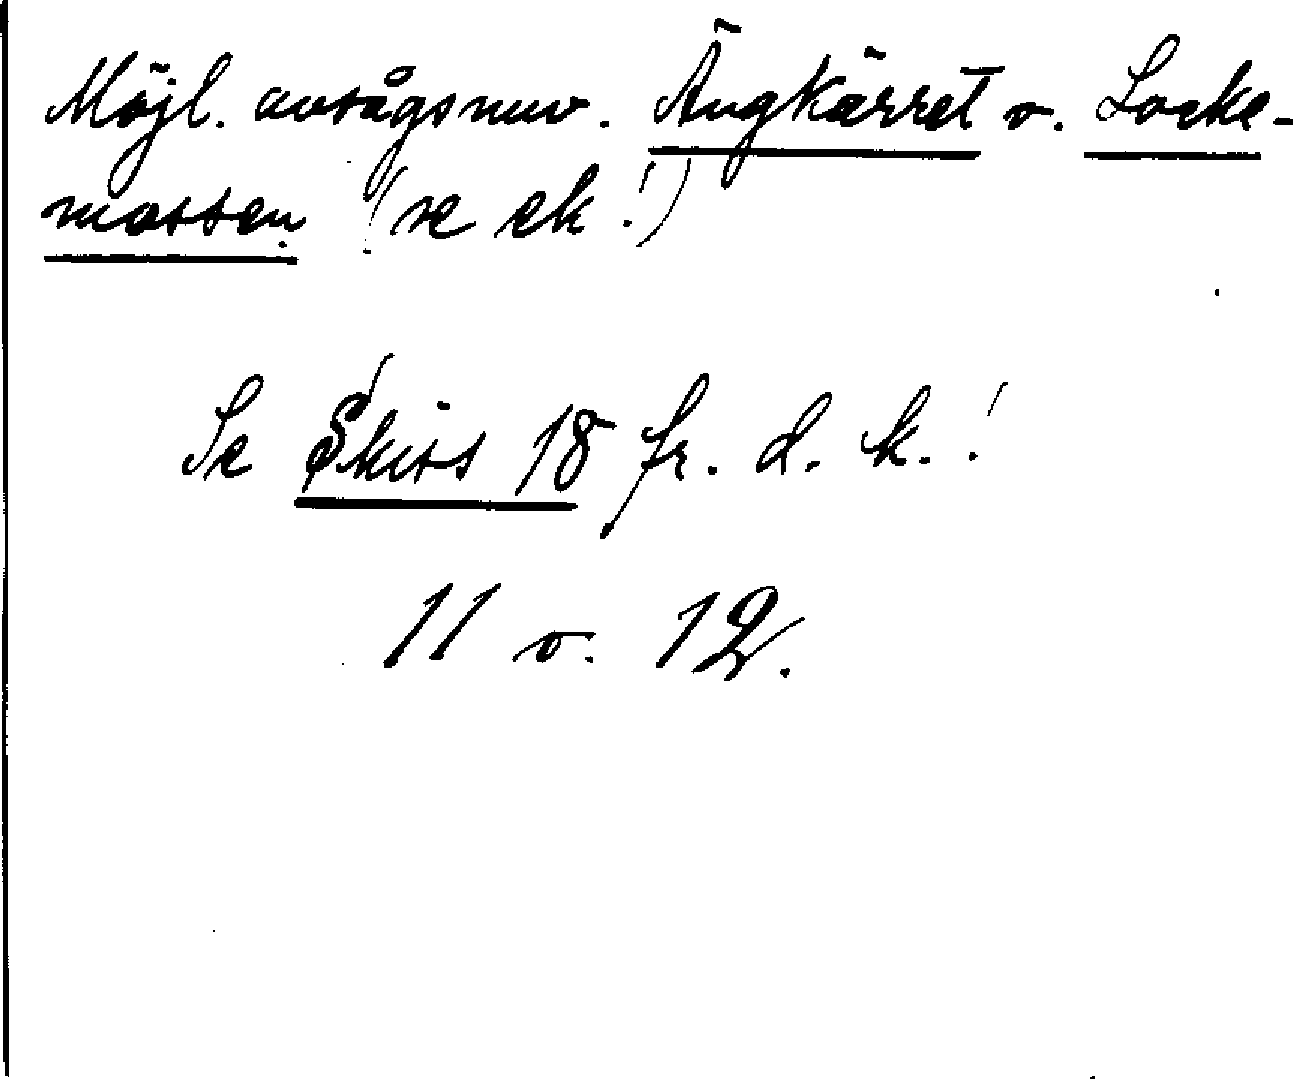 Möjl. avsågs nuv. Ängkärret o. Locke-
mossen (se ek!)
Se Skiss 18 fr. d. k.!
11 o. 12.